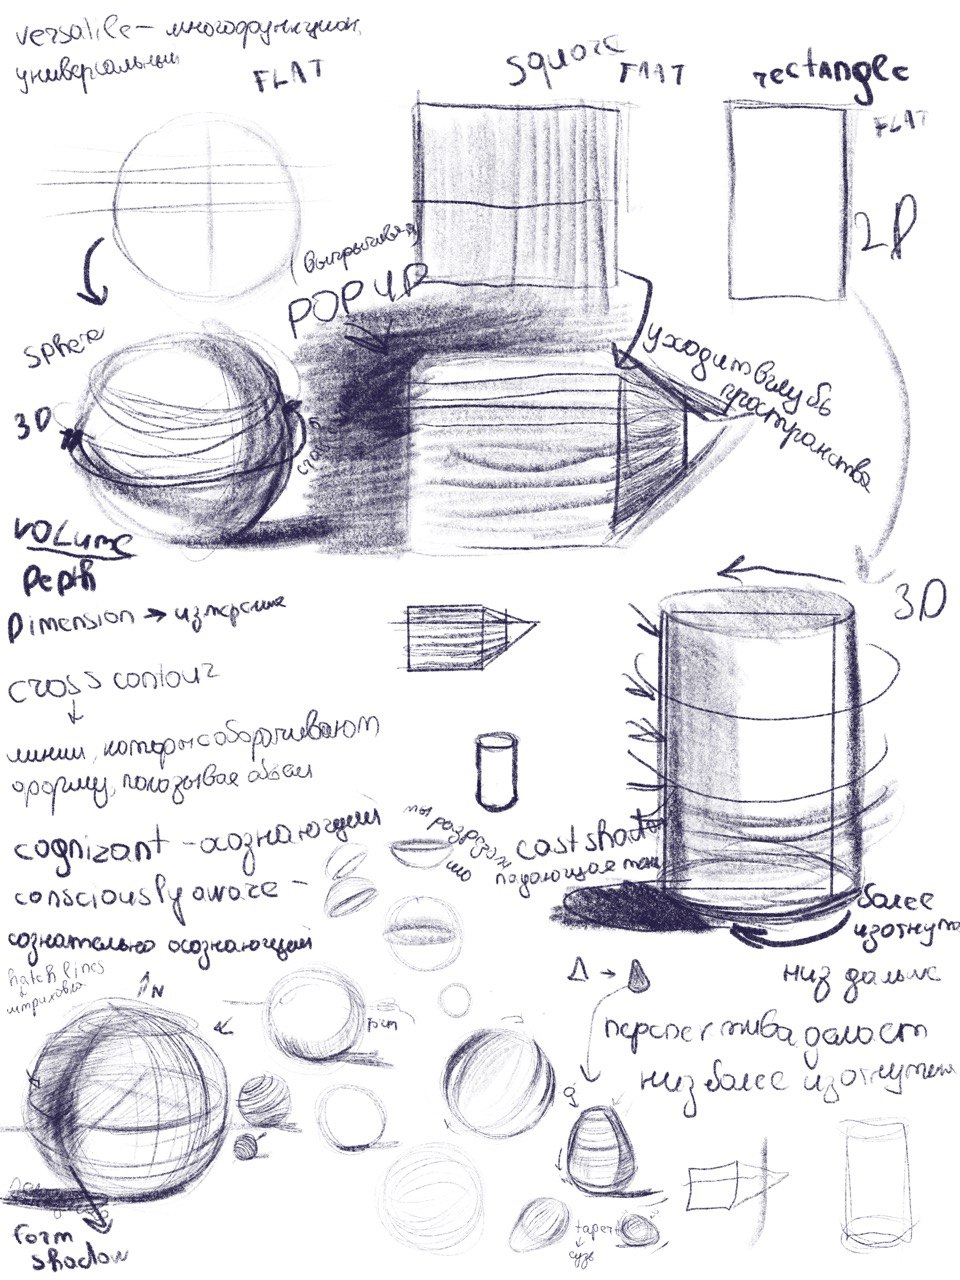 versatile - многофункцион,
универсальный
FLAT
square
FLAT
rectangle
FLAT
2D
POP UP
sphere
3D
уходит вглубь
пространства
VOLume
Depth
Dimension → измерение
3D
cross contour
линии, которые оборачивают
форму, показывая объем
cognizant - осознающий
consciously aware -
сознательно осознающий
мы разрезали
cast shadow
падающая тень
более
изогнут
низ дальше
hatch lines
штриховка
N
перспектива делает
низ более изогнутым
taper
form
shadow